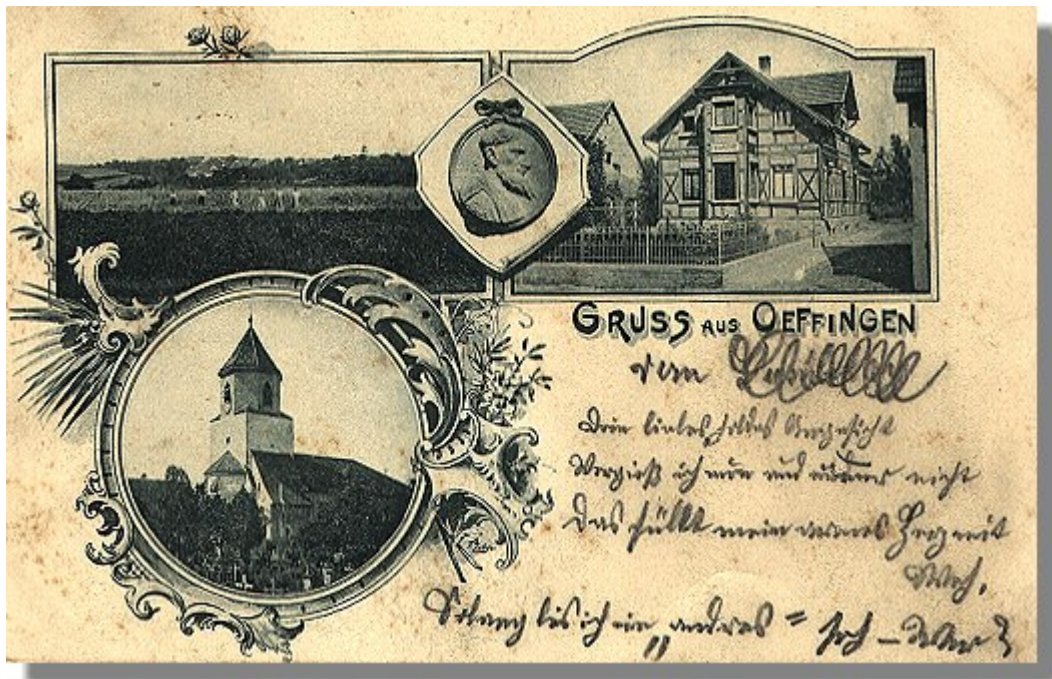 GRUSS AUS OEFFINGEN
von
Dein liebes holdes Angesicht
Vergeß ich nun und nimmer nicht
Das füllt mein armes Herz mit
Weh,
Solang bis ich ein „andres = seh –